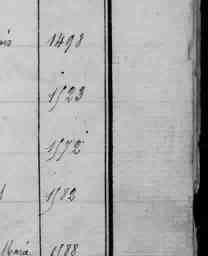 1498
1523
1572
1582
1588